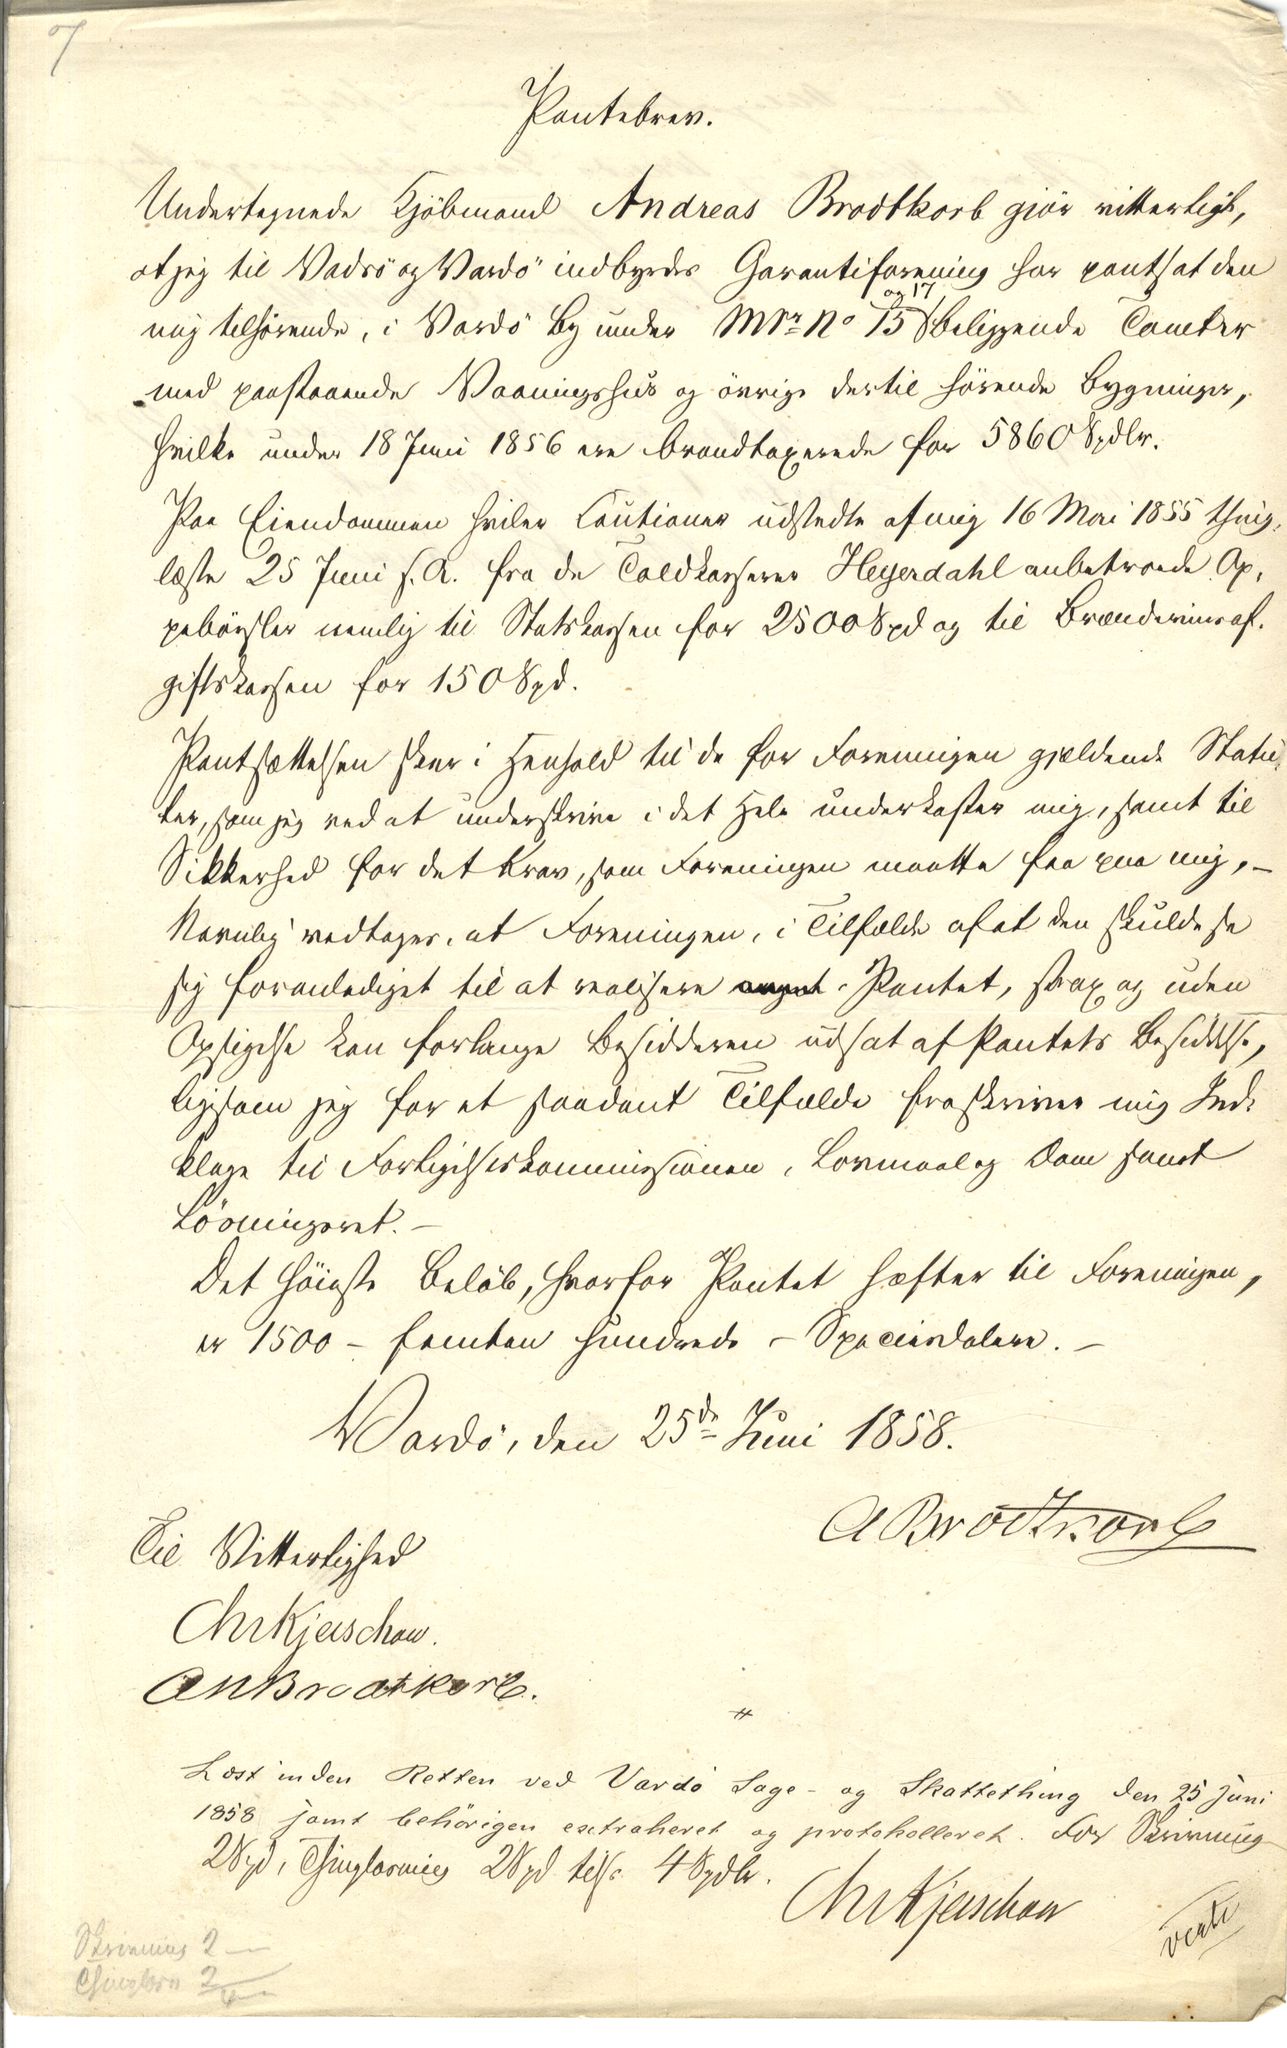 Pantebrev.
Undertegnede Kjöbmand Andreas Brodtkorb gjör vitterligt,
at jeg til Vadsö og Vardö indbyrdes Garantiforening har pantsat den
mig tilhörende, i Vardö By under Mtr No 15 og 17 beliggende Tomter
med paastaaende Vaaningshus og övrige dertil hörende Bygninger,
hvilke under 18 Juni 1856 ere brandtaxerede for 5860 Spdlr.
Paa Eiendommen hviler Cautioner udstedte af mig 16 Mai 1855 thing-
læste 25 Juni s. A. for de Toldkasserer Heyerdahl anbetroede Op-
pebörsler nemlig til Statskassen for 2500 Spd og til Brændevinsaf-
giftskassen for 150 Spd.
Pantsættelsen sker i Henhold til de for Foreningen gjældende Statu-
ter, som jeg ved at underskrive i det Hele underkaster mig, samt til
Sikkerhed for det Krav, som Foreningen maatte faa paa mig, –
Navnlig vedtages, at Foreningen, i Tilfælde af at den skulde se
sig foranlediget til at realisere Pantet, strax og uden
Opsigelse kan forlange Besidderen udsat af Pantets Besiddelse,
ligesom jeg for et saadant Tilfælde fraskriver mig Ind-
klage til Forligelseskommissionen, Lovmaal og Dom samt
Lösningsret. –
Det höieste Belöb, hvorfor Pantet hæfter til Foreningen,
er 1500 – femten hundrede – Speciesdalere. –
Vardö, den 25de Juni 1858.
A Brodtkorb
Til Vitterlighed
Chr Kjerschow.
AM Brodtkorb.
Læst inden Retten ved Vardö Sage- og Skattething den 25 Juni
1858 samt behörigen extraheret og protokolleret. For Skrivning
2 Spd, Thinglæsning 2 Spd tils. 4 Spdlr.
Chr Kjerschow
verte
Skrivning 2 –
Thinglæsn 2 –
4 –